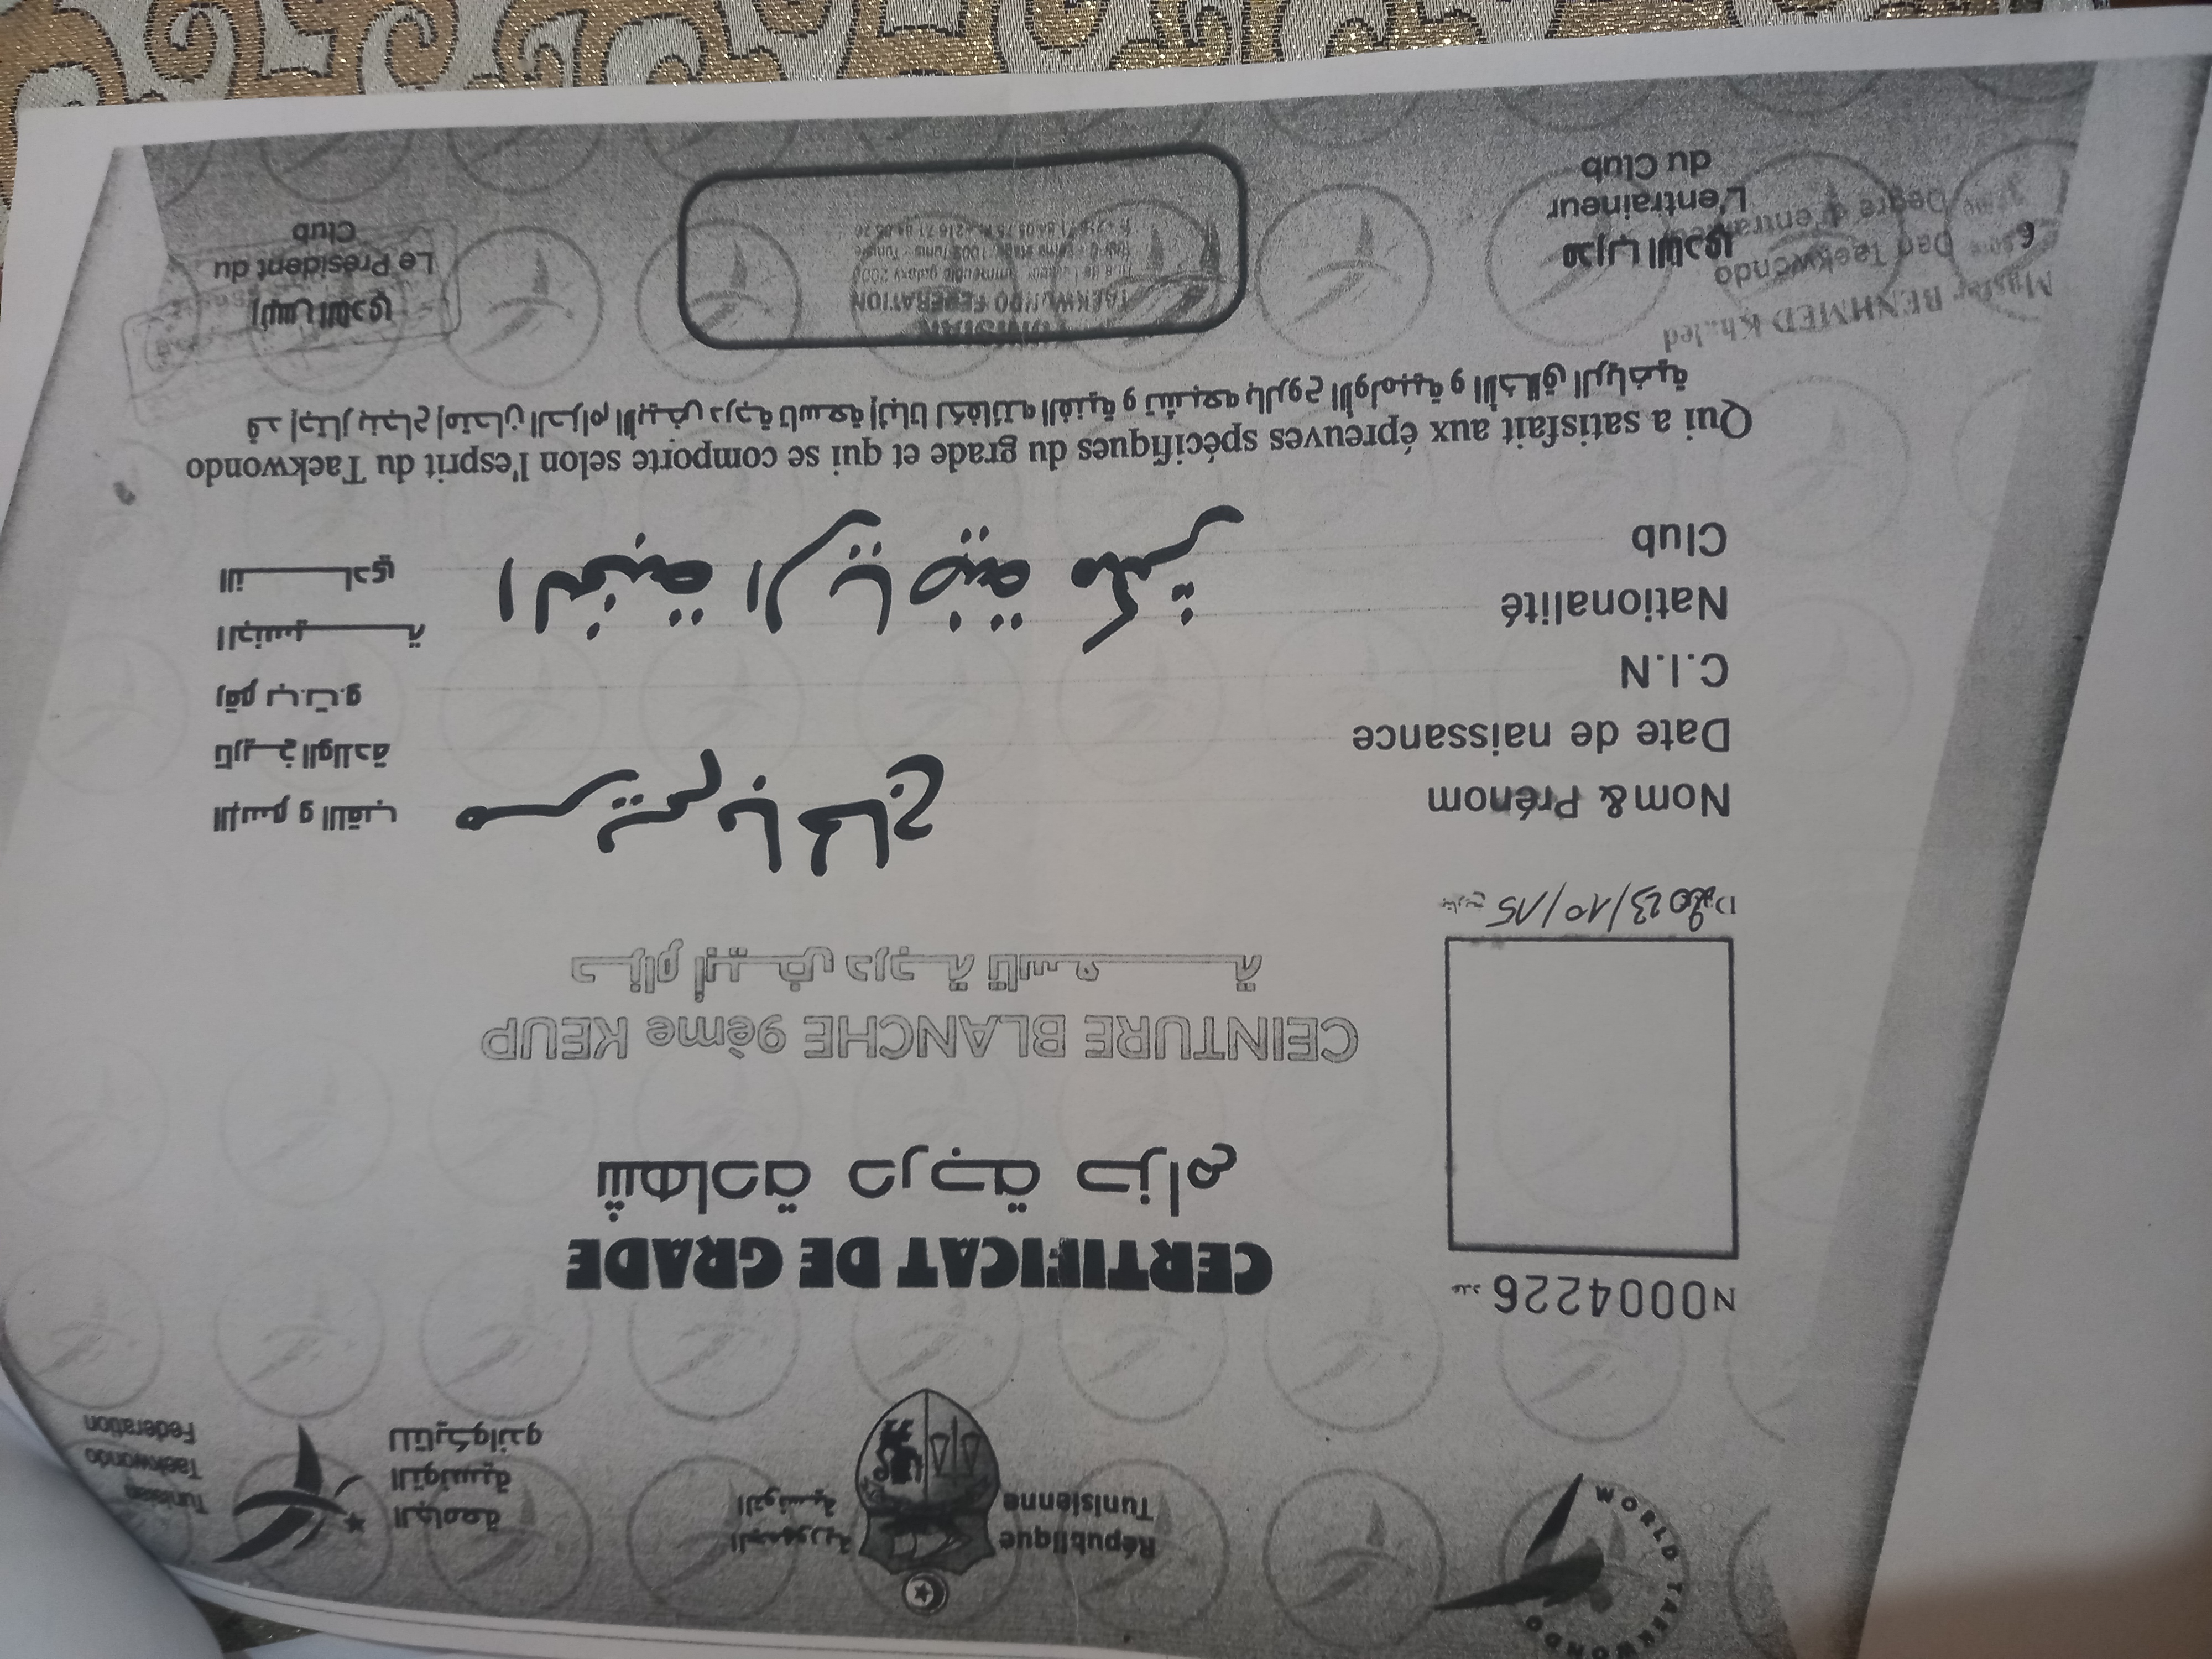 WORLD TAEKWONDO
République
Tunisienne
الجمهورية
التونسية
الجامعة
التونسية
للتايكواندو
Tunisian
Taekwondo
Federation
N0004226 عدد
CERTIFICAT DE GRADE
شهادة درجة حزام
CEINTURE BLANCHE 9ème KEUP
حزام أبيض درجة تاسعة
2023/10/15
Nom& Prénom
الإسم و اللقب
Date de naissance
تاريخ الولادة
C.I.N
رقم ب.ت.و
Nationalité
الجنسية
Club
النادي
Qui a satisfait aux épreuves spécifiques du grade et qui se comporte selon l'esprit du Taekwondo
قد إجتاز بنجاح إمتحان الحزام الأبيض درجة تاسعة إثباتا لكفائته الفنية و تشبعه بالروح الأولمبية و الأخلاق الرياضية
Master BENHMED Khaled
6ème Dan Taekwondo
Degré d'entraineur
مدرب النادي
L'entraineur
du Club
TUNISIAN
TAEKWONDO FEDERATION
رئيس النادي
Le Président du
Club